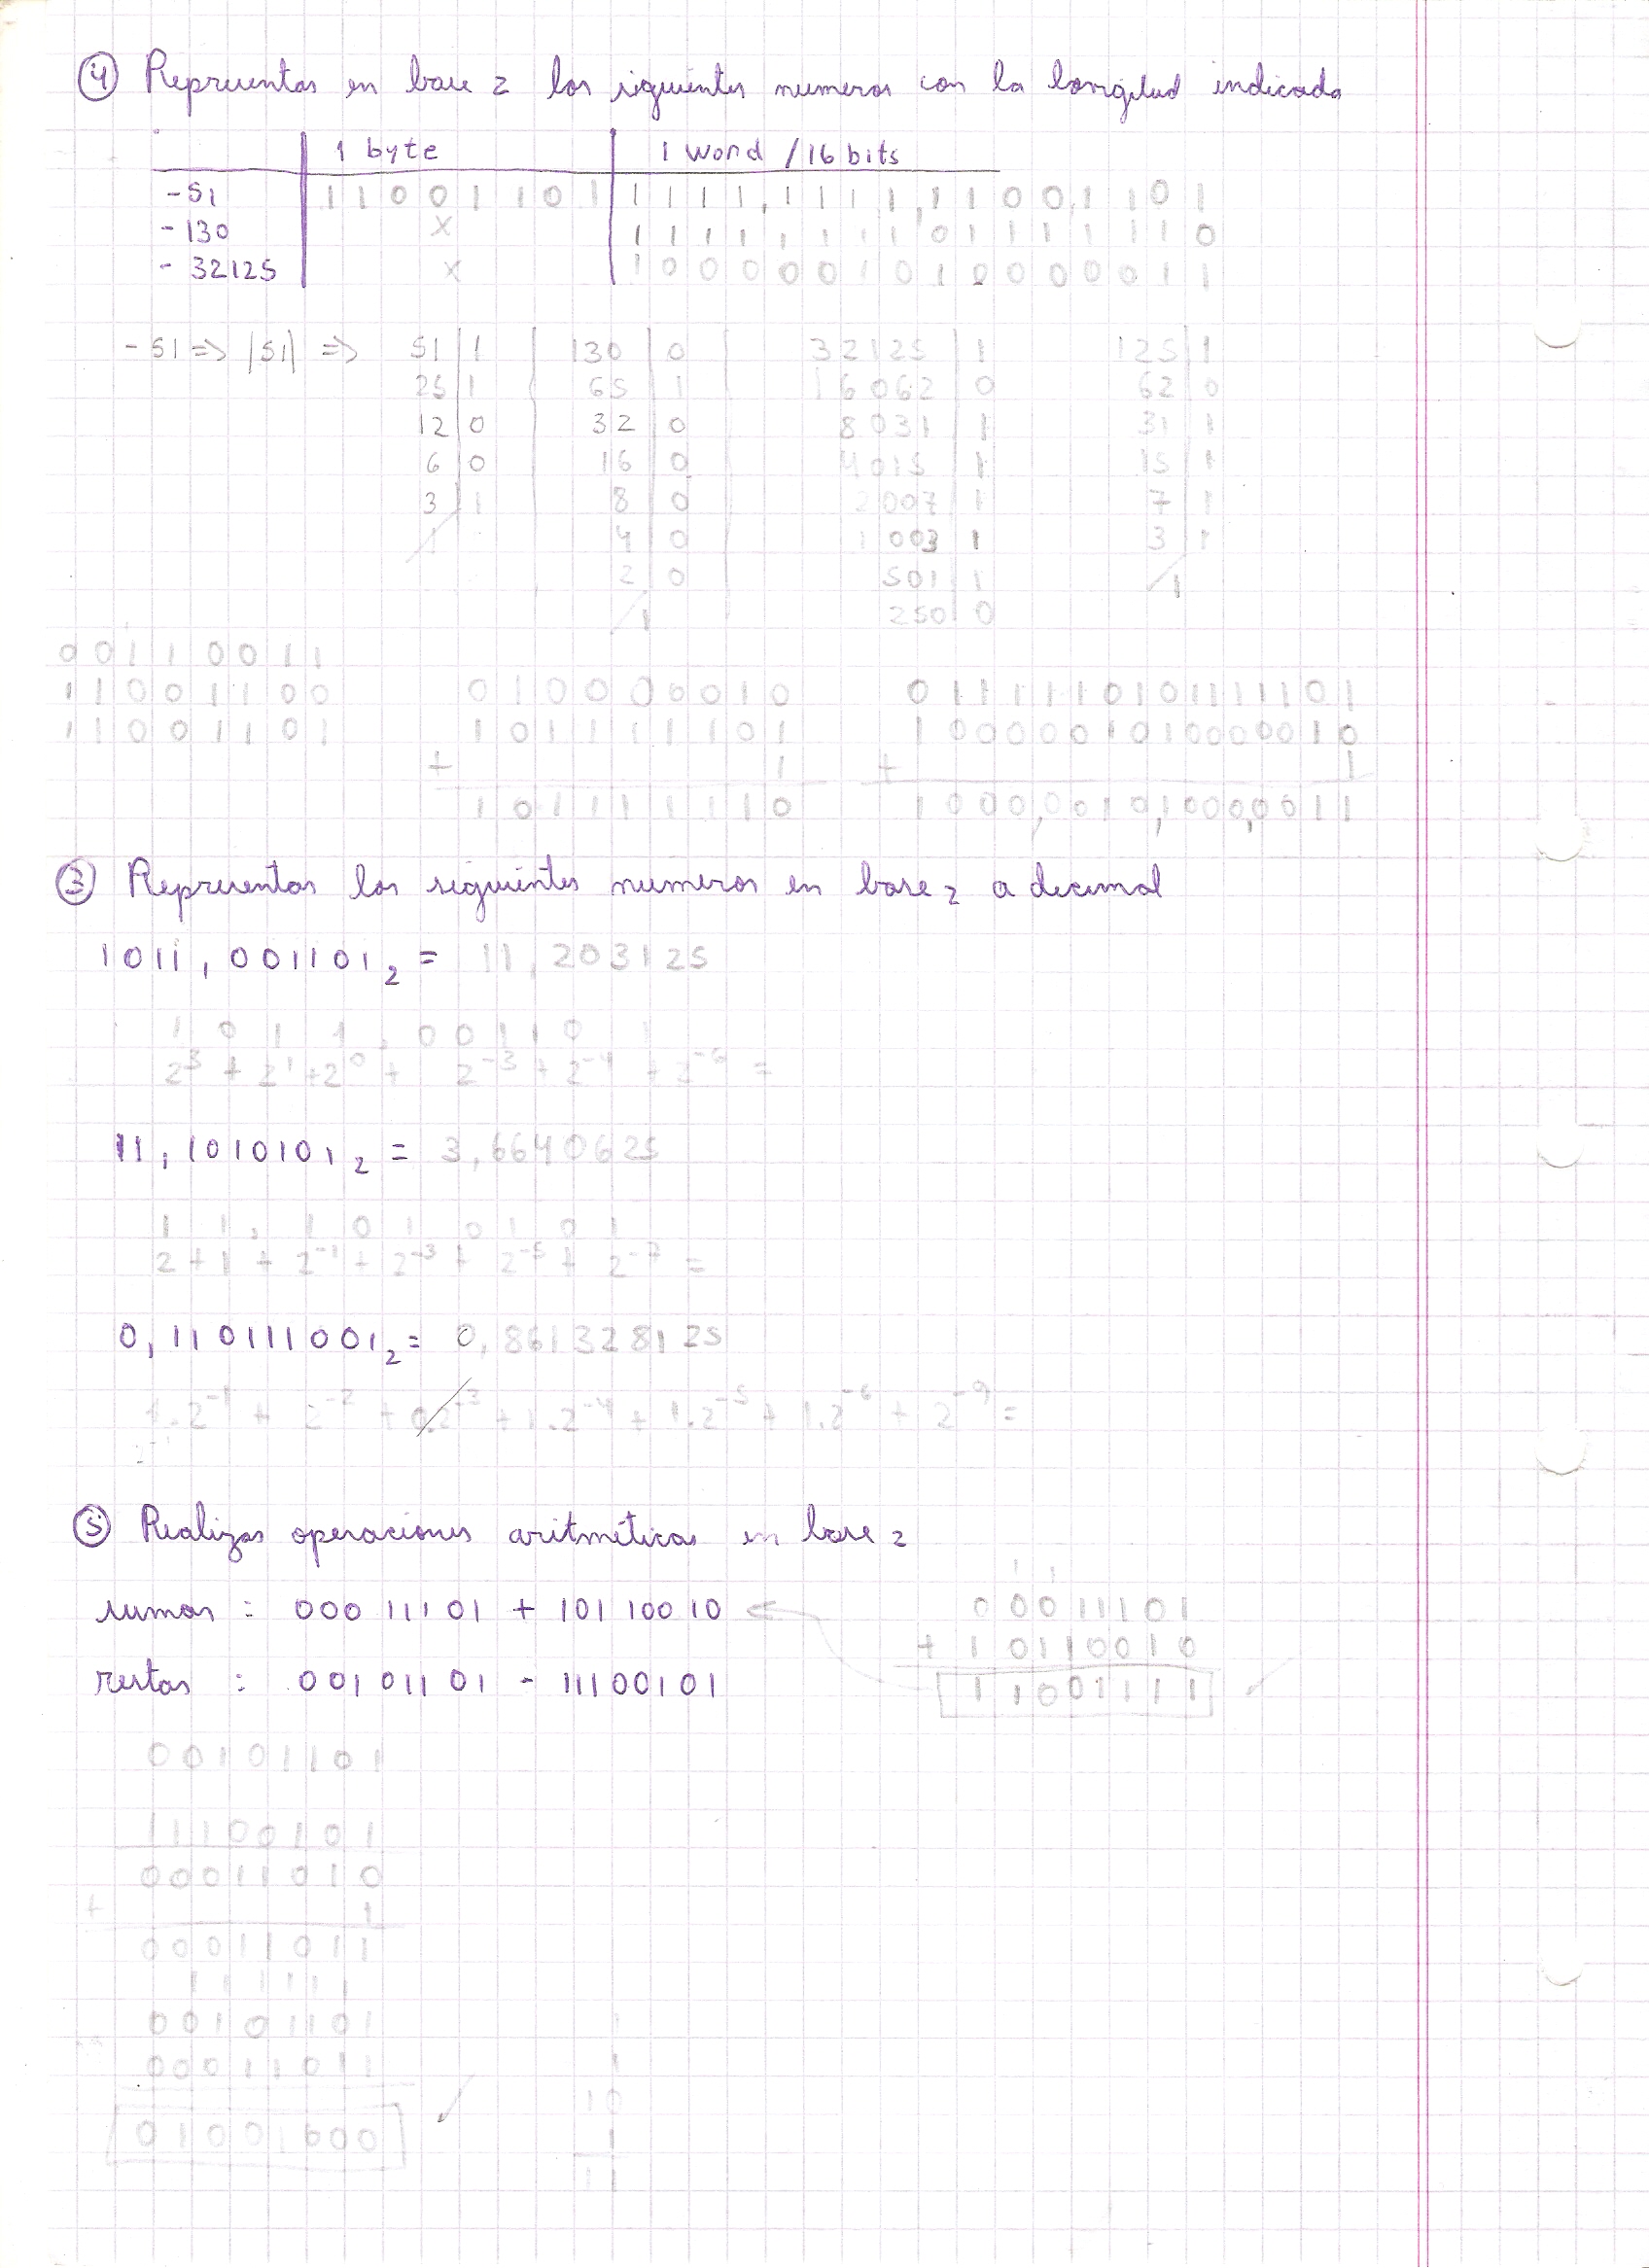 ④ Representar en base 2 los siguientes numeros con la longitud indicada
1 byte 1 word / 16 bits
-51 11001101 1111,1111,1100,1101
-130 x 1111111101111110
-32125 x 1000001010000011
-51 => |51| => 51|1 130|0 32125|1 125|1
25|1 65|1 16062|0 62|0
12|0 32|0 8031|1 31|1
6|0 16|0 4015|1 15|1
3|1 8|0 2007|1 7|1
1 4|0 1003|1 3|1
2|0 501|1 1
1 250|0
00110011
11001100 010000010 0111110101111101
11001101 101111101 1000001010000010
+ 1 + 1
101111110 1000,0010,1000,0011
③ Representar los siguientes numeros en base 2 a decimal
1011,001101₂ = 11,203125
1 0 1 1 , 0 0 1 1 0 1
2³ + 2¹ + 2⁰ + 2⁻³ + 2⁻⁴ + 2⁻⁶ =
11,1010101₂ = 3,6640625
1 1 , 1 0 1 0 1 0 1
2 + 1 + 2⁻¹ + 2⁻³ + 2⁻⁵ + 2⁻⁷ =
0,110111001₂ = 0,861328125
1.2⁻¹ + 2⁻² + 0.2⁻³ + 1.2⁻⁴ + 1.2⁻⁵ + 1.2⁻⁶ + 2⁻⁹ =
⑤ Realizar operaciones aritméticas en base 2
1 1
sumas : 00011101 + 10110010 <- 00011101
+ 10110010
restas : 00101101 - 11100101 11001111
00101101
11100101
00011010
+ 1
00011011
111111
00101101 1
00011011 1
10
01001000 1
11